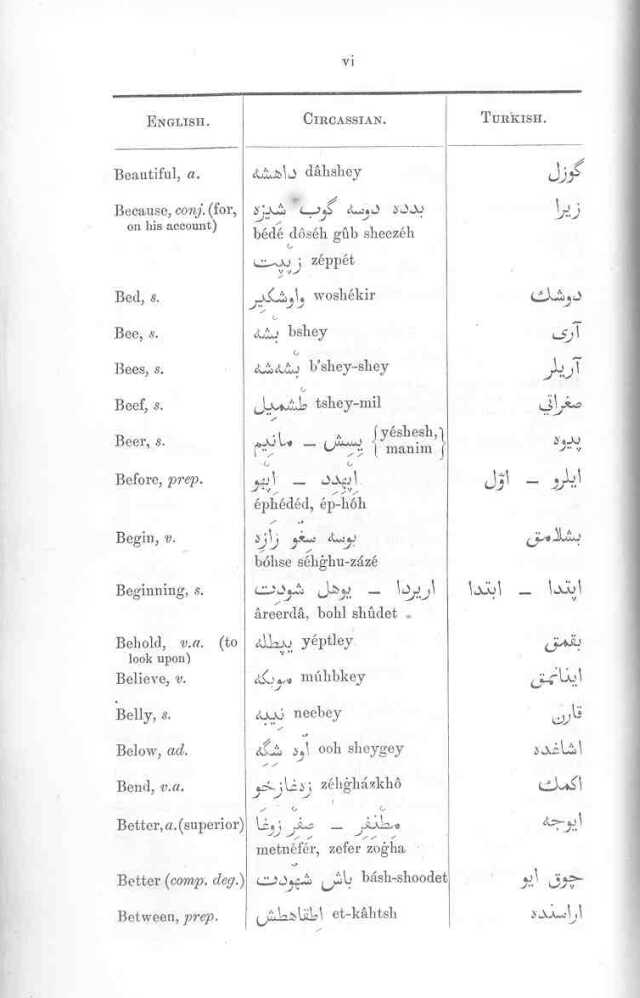 vi
ENGLISH. CIRCASSIAN. TURKISH.
Beautiful, a. داهشه dâhshey گوزل
Because, conj. (for, بدده دوسه گوب شيزه زيرا
on his account) bédé dôséh gûb sheezéh
زپپت zéppét
Bed, s. واوشكير woshékir دوشك
Bee, s. بشه bshey آرى
Bees, s. بشه‌شه b'shey-shey آريلر
Beef, s. طشميل tshey-mil صغراتي
Beer, s. ييشش – مانيم {yéshesh, manim} پيوه
Before, prep. اپهدد – اپهو ايلرو – اوّل
éphédéd, ép-hóh
Begin, v. بوسه سغو زازه بشلامق
bóhse séhġhu-zázé
Beginning, s. اريردا – بوهل شودت اپتدا – ابتدا
âreerdâ, bohl shûdet
Behold, v.a. (to ييطله yéptley بقمق
look upon)
Believe, v. موبكه múhbkey اينانمق
Belly, s. نيبه neebey قارن
Below, ad. اوه شگه ooh sheygey اشاغده
Bend, v.a. زهغازخو zéhġházkhô اكمك
Better, a. (superior) مطنفر – صفر زوغا ايوجه
metnéfér, zefer zoġha
Better (comp. deg.) باش شهودت básh-shoodet چوق ايو
Between, prep. اطقاهطش et-kâhtsh اراسنده